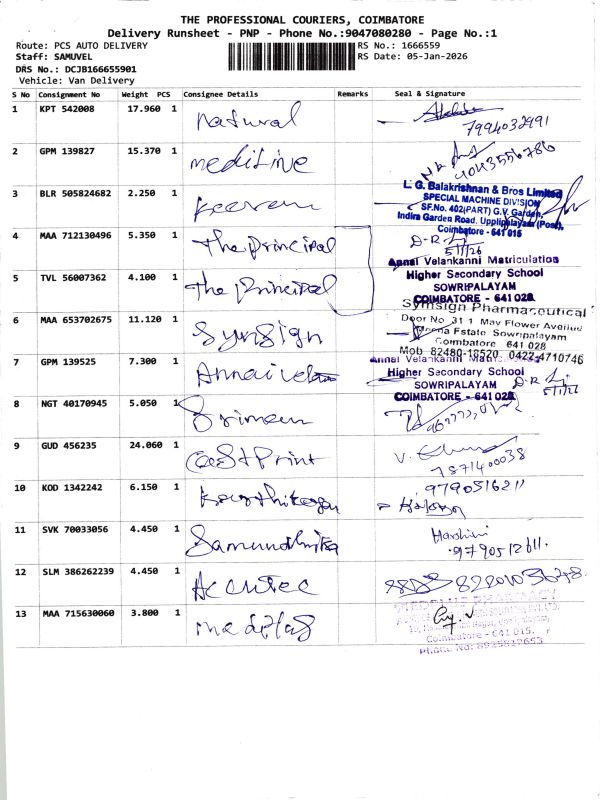 THE PROFESSIONAL COURIERS, COIMBATORE
Delivery Runsheet - PNP - Phone No.:9047080280 - Page No.:1
Route: PCS AUTO DELIVERY
RS No.: 1666559
Staff: SAMUVEL
RS Date: 05-Jan-2026
DRS No.: DCJB166655901
Vehicle: Van Delivery
S No Consignment No Weight PCS Consignee Details Remarks Seal & Signature
1 KPT 542008 17.960 1 natural
7994032991
2 GPM 139827 15.370 1 medilive
3 BLR 505824682 2.250 1
L. G. Balakrishnan & Bros Limited
SPECIAL MACHINE DIVISION
SF.No. 402(PART) G.V. Garden,
Indira Garden Road, Uppilipalayam (Post),
Coimbatore - 641 015
4 MAA 712130496 5.350 1 The principal
5/1/26
Annai Velankanni Matriculation
Higher Secondary School
SOWRIPALAYAM
COIMBATORE - 641 028
5 TVL 56007362 4.100 1 The principal
6 MAA 653702675 11.120 1 Synsign
Symsign Pharmaceutical
Door No 31 1 May Flower Avenue
Meena Estate Sowripalayam
Coimbatore 641 028
Mob 82480-18520 0422-4710746
7 GPM 139525 7.300 1 Annai velan
Annai Velankanni
Higher Secondary School
SOWRIPALAYAM
COIMBATORE - 641 028
D-R
5/1/26
8 NGT 40170945 5.050 1
9 GUD 456235 24.060 1 cast Print
7871400038
10 KOD 1342242 6.150 1 Karthikeyan
9790516211
11 SVK 70033056 4.450 1 Samundhika
Harshini
9790512611.
12 SLM 386262239 4.450 1 Accutec
13 MAA 715630060 3.800 1 mediplus
Coimbatore - 641 015.